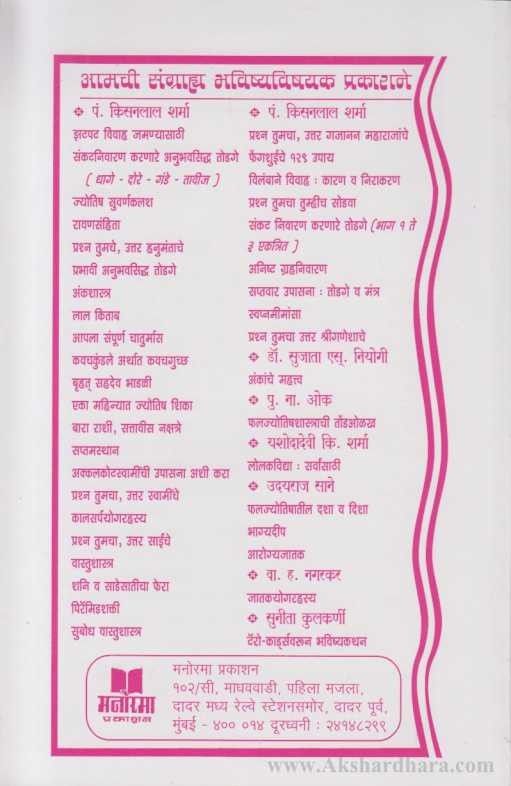 आमची संग्राह्य भविष्यविषयक प्रकाशने
पं. किसनलाल शर्मा
झटपट विवाह जमण्यासाठी
संकटनिवारण करणारे अनुभवसिद्ध तोडगे
( धागे - दोरे - गंडे - तावीज )
ज्योतिष सुवर्णकलश
रावणसंहिता
प्रश्न तुमचे, उत्तर हनुमंताचे
प्रभावी अनुभवसिद्ध तोडगे
अंकशास्त्र
लाल किताब
आपला संपूर्ण चातुर्मास
कवचकुंडले अर्थात कवचगुच्छ
बृहत् सहदेव भाडळी
एका महिन्यात ज्योतिष शिका
बारा राशी, सत्तावीस नक्षत्रे
सप्तमस्थान
अक्कलकोटस्वामींची उपासना अशी करा
प्रश्न तुमचा, उत्तर स्वामींचे
कालसर्पयोगरहस्य
प्रश्न तुमचा, उत्तर साईंचे
वास्तुशास्त्र
शनि व साडेसातीचा फेरा
पिरॅमिडशक्ती
सुबोध वास्तुशास्त्र
पं. किसनलाल शर्मा
प्रश्न तुमचा, उत्तर गजानन महाराजांचे
फेंगशुईचे १२९ उपाय
विलंबाने विवाह : कारण व निराकरण
प्रश्न तुमचा तुम्हीच सोडवा
संकट निवारण करणारे तोडगे (भाग १ ते
३ एकत्रित )
अनिष्ट ग्रहनिवारण
सप्तवार उपासना : तोडगे व मंत्र
स्वप्नमीमांसा
प्रश्न तुमचा उत्तर श्रीगणेशाचे
डॉ. सुजाता एस्. नियोगी
अंकांचे महत्त्व
पु. ना. ओक
फलज्योतिषशास्त्राची तोंडओळख
यशोदादेवी कि. शर्मा
लोलकविद्या : सर्वांसाठी
उदयराज साने
फलज्योतिषातील दशा व दिशा
भाग्यदीप
आरोग्यजातक
वा. ह. नगरकर
जातकयोगरहस्य
सुनीता कुलकर्णी
टॅरो-कार्ड्सवरून भविष्यकथन
मनोरमा
प्रकाशन
मनोरमा प्रकाशन
१०२/सी, माधववाडी, पहिला मजला,
दादर मध्य रेल्वे स्टेशनसमोर, दादर पूर्व,
मुंबई - ४०० ०१४ दूरध्वनी : २४१४८२९९
www.Akshardhara.com